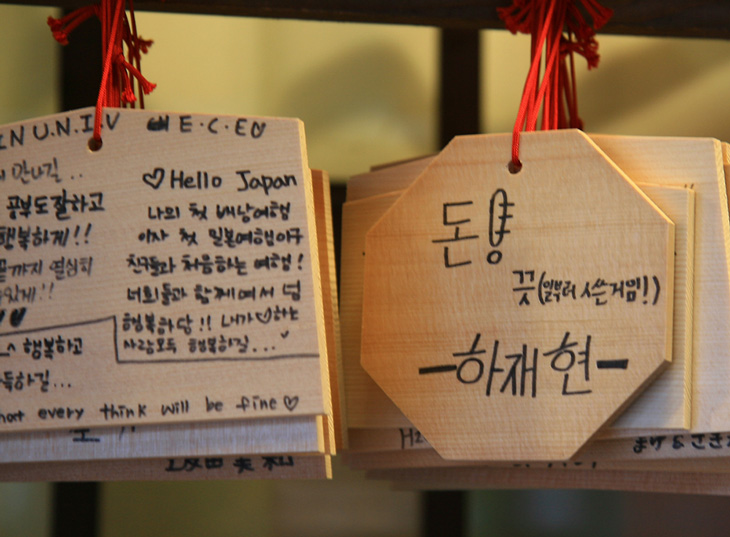 IN U.N.I.V E.C.E
만나길..
공부도잘하고
행복하게!!
끝까지 열심히
행복하고
하길...
♡Hello Japan
나의 첫 배낭여행
이자 첫 일본여행이구
친구들과 처음하는 여행!
너희들과 함께여서 넘
행복하당!! 내가♡하는
사람모두 행복하길...♥
that every think will be fine♡
돈
끗(일부터 쓴거임!)
-하재현-
まけ&さき